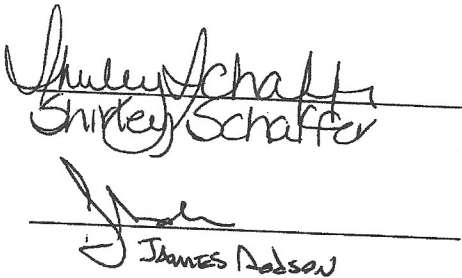 Shirley Schaffer
Shirley Schaffer
JAMES DODSON